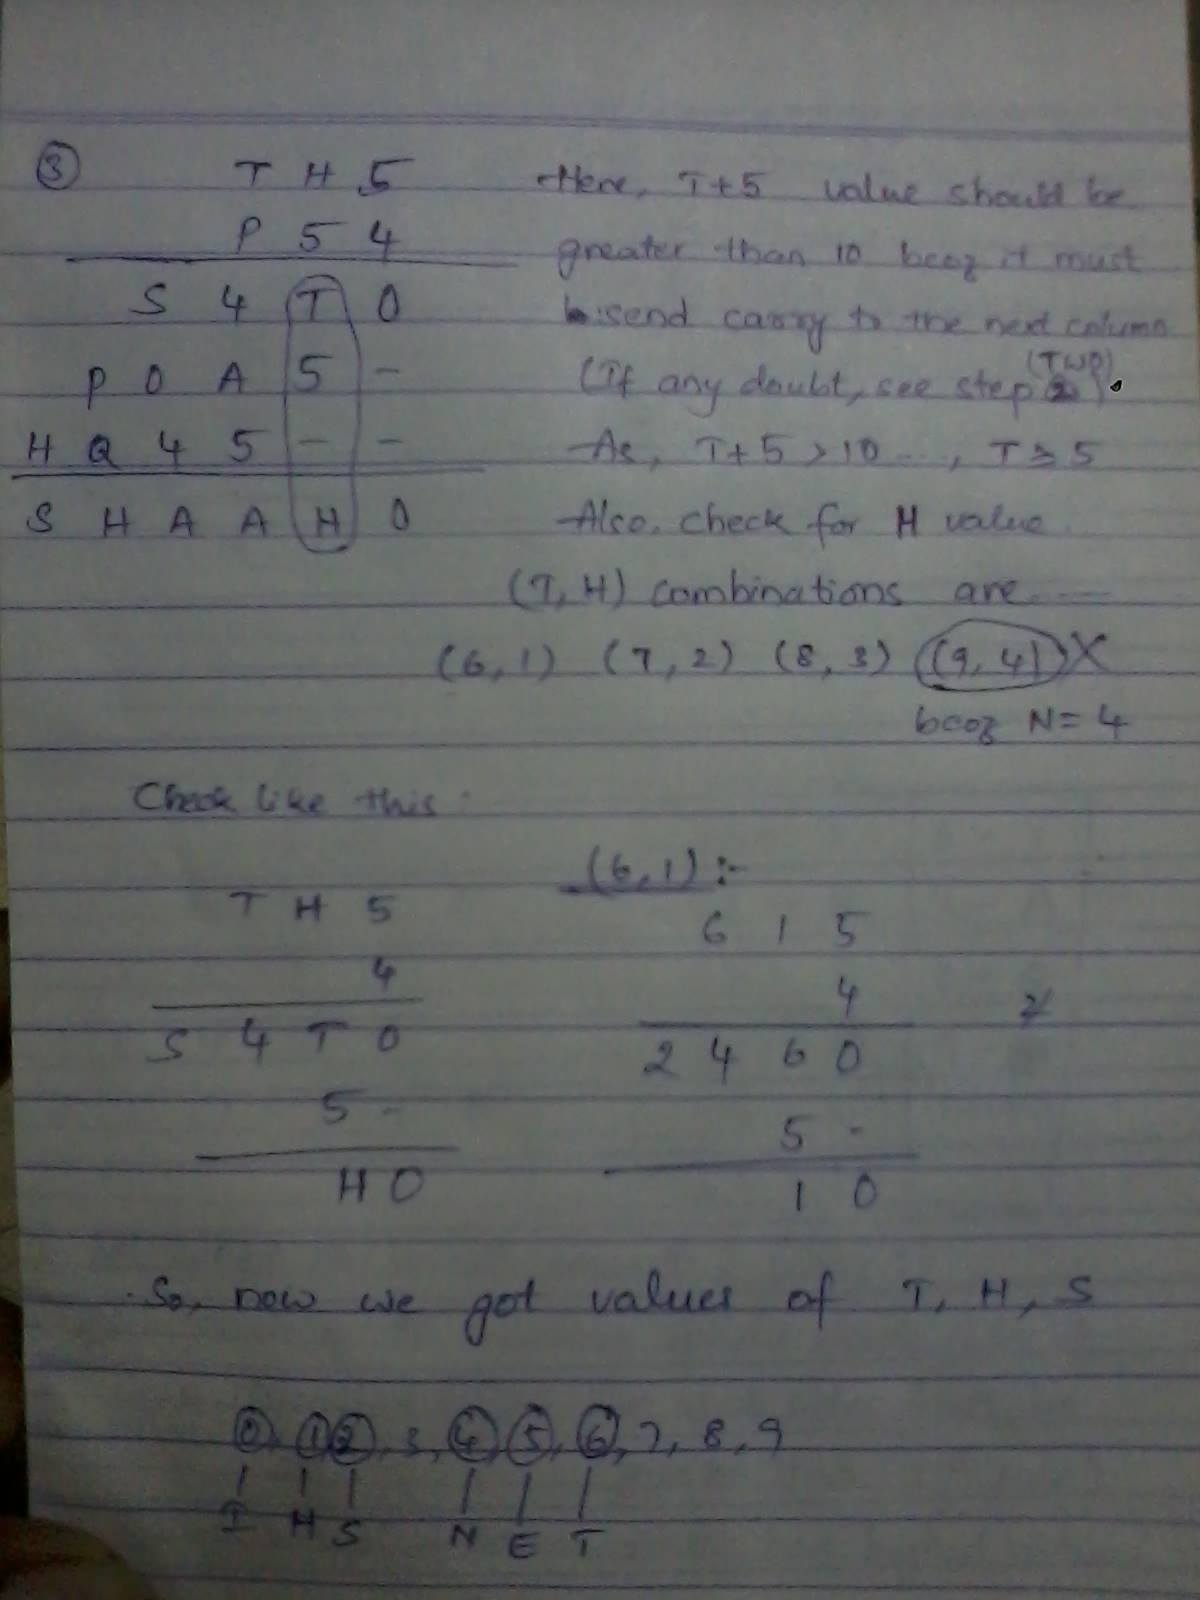 3
T H 5
P 5 4
S 4 T 0
P 0 A 5 -
H Q 4 5 - -
S H A A H 0
Here, T+5 value should be
greater than 10 bcoz it must
send carry to the next column
(If any doubt, see step 2).
(TWO)
As, T+5 > 10 ...., T ≥ 5
Also, check for H value.
(T, H) combinations are ----
(6, 1) (7, 2) (8, 3) (9, 4) X
bcoz N = 4
Check like this :
T H 5
4
S 4 T 0
5 -
H 0
(6, 1) :-
6 1 5
4
2 4 6 0
5 -
1 0
So, now we got values of T, H, S
0, 1, 2, 3, 4, 5, 6, 7, 8, 9
I H S N E T